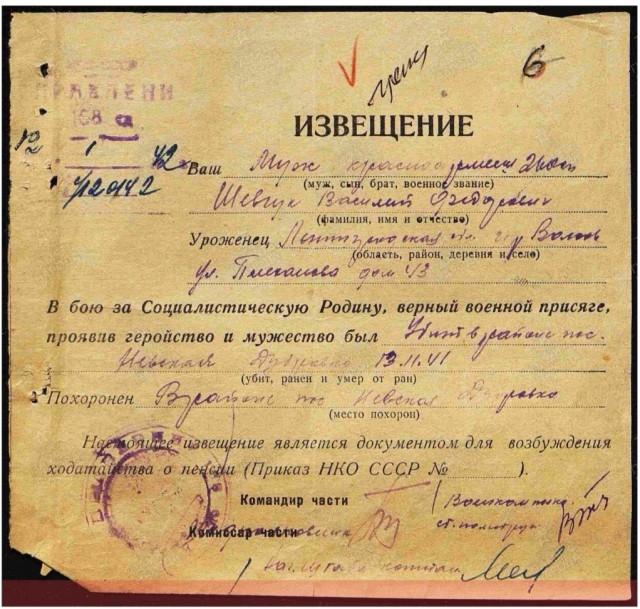 6
ИЗВЕЩЕНИЕ
12 1 42
Ваш Муж красноармеец
(муж, сын, брат, военное звание)
Шевчук Василий Федорович
(фамилия, имя и отчество)
Уроженец Ленинградская обл.
(область, район, деревня и село)
ул. Плеханова дом 43
В бою за Социалистическую Родину, верный военной присяге,
проявив геройство и мужество был Убит в районе пос.
Невская Дубровка 13.11.41
(убит, ранен и умер от ран)
Похоронен В районе пос Невская Дубровка
(место похорон)
Настоящее извещение является документом для возбуждения
ходатайства о пенсии (Приказ НКО СССР № ).
Командир части Военком полка
Комиссар части ст. политрук